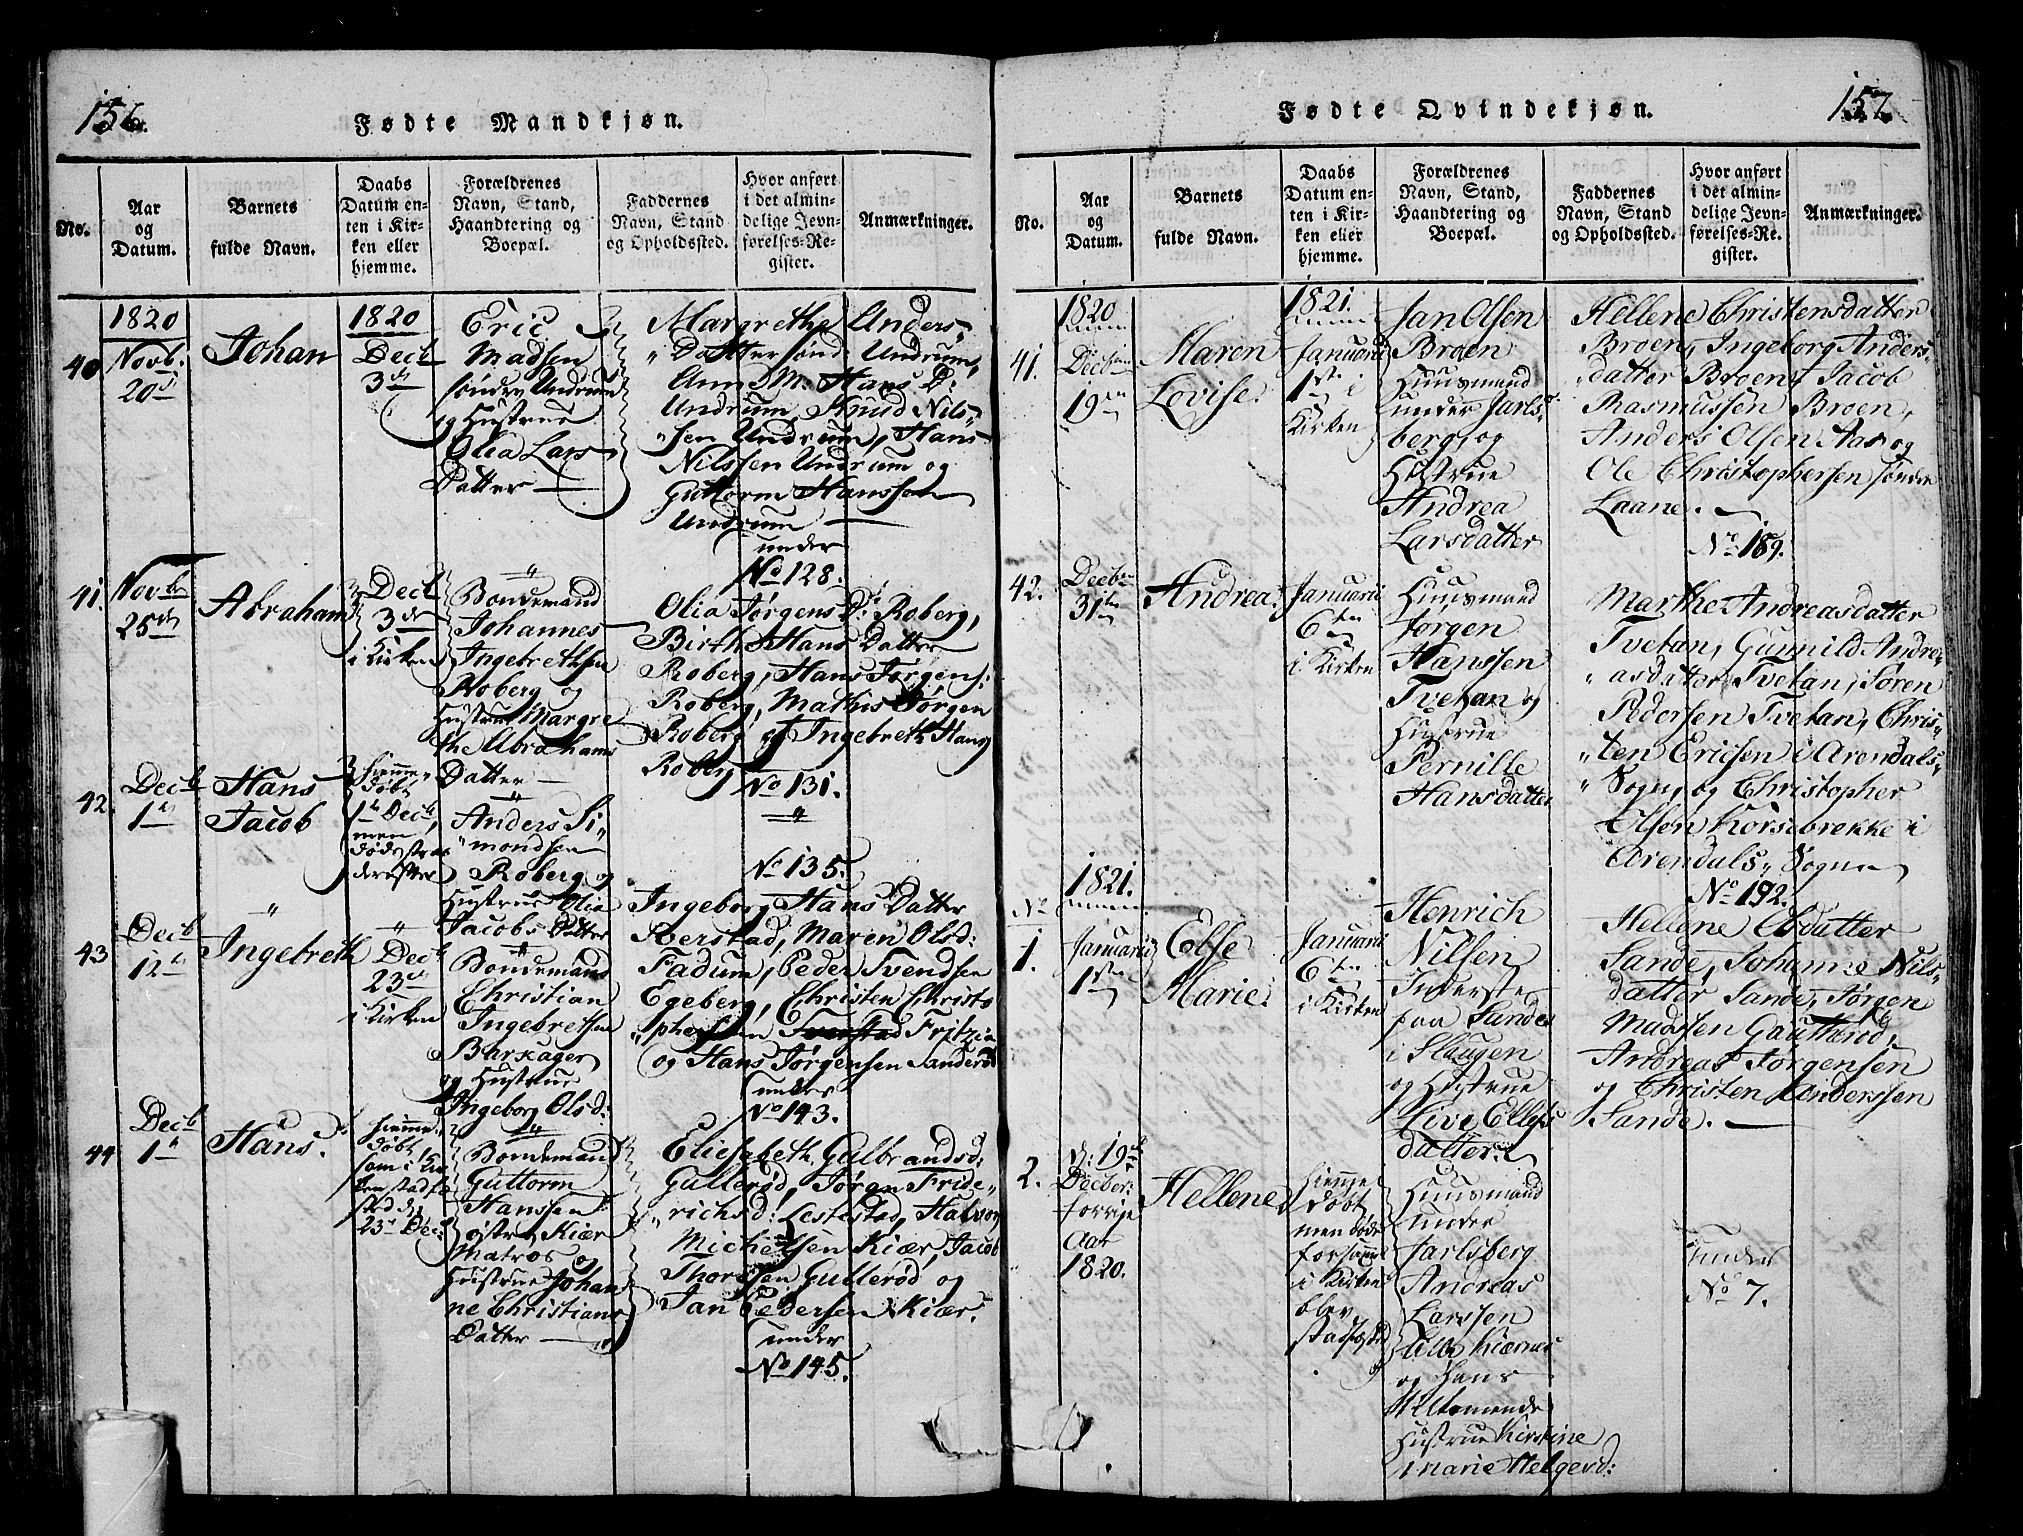 156.
Fødte Mandkjøn.
No.
Aar
og
Datum.
Barnets
fulde Navn.
Daabs
Datum en-
ten i Kir-
ken eller
hjemme.
Forældrenes
Navn, Stand,
Haandtering og
Boepæl.
Faddernes
Navn, Stand
og Opholdssted.
Hvor anført
i det almin-
delige Jevn-
førelses-Re-
gister.
Anmærkninger.
40
1820
Novb:
20de
Johan
1820
Decb
3de
Eric
Madsen
søndre Undrum
og Hustrue
Olia Lars
Datter
Margrethe Anders-
Datter sønd: Undrum,
Hans D:
Undrum, Knud Nils-
sen Undrum, Hans
Nilssen Undrum og
Guttorm Hanssen
Undrum
under
No 128.
41.
Novbr
25de
Abraham
Decb
3de
i Kirken
Bondemand
Johannes
Ingebrethsen
Roberg og
Hustrue Margre
the Abrahams
Datter
Olia Jørgens D: Roberg,
Birthe Hans Datter
Roberg, Hans Jørgens:
Roberg, Mathis Jørgen
Roberg og Ingebreth Hans
Roberg
No 131.
42.
Decb
1te
Hans
Jacob
hjemme-
døbt
1te Decb,
men
døde strax
derefter
Anders Si-
mondsen
Roberg og
Hustrue Olia
Jacobs Datter
No 135.
43
Decb
12te
Ingebreth
Decb
23de
i Kirken
Bondemand
Christian
Ingebretsen
Barkager
og Hustrue
Ingeborg Olsd:
Ingeborg Hans Datter
Sverstad, Maren Olsd:
Fadum, Peder Svendsen
Egeberg, Christen Christo
phersen Fritzøe
og Hans Jørgensen Sanderød
under
No 143.
44
Decb
1te
Hans.
hjemme-
døbt
som i Kir
ken stadfæ
sted d.
23de Dec:
Bondemand
Guttorm
Hanssen
østre Kiær
Matros og
Hustrue Johan
ne Christians
Datter
Elisabeth Gulbrandsd:
Gullerød, Jøran Fride-
richsd: Lestestad, Halvor
Michelsen Kiær, Jacob
Thorsen Gullerød og
Jan Pedersen Kiær.
under
No 145.
157.
Fødte Qvindekjøn.
No.
Aar
og
Datum.
Barnets
fulde Navn.
Daabs
Datum en-
ten i Kir-
ken eller
hjemme.
Forældrenes
Navn, Stand,
Haandtering og
Boepæl.
Faddernes
Navn, Stand
og Opholdssted.
Hvor anført
i det almin-
delige Jevn-
førelses-Re-
gister.
Anmærkninger.
41.
1820
Decbr
19de
Maren
Lovise.
1821.
Januarii
1ste i
Kirken
Jan Olsen
Broen
Huusmand
under Jarls-
berg, og
Hustrue
Andrea
Larsdatter
Hellene Christensdatter
Broen, Ingeborg Anders-
datter Broen, Jacob
Rasmussen Broen,
Anders Olsen Aas og
Ole Christophersen søndre
Laane.
No 189.
42.
Decbr
31te
Andrea.
Januarii
6ten
i Kirken
Huusmand
Jørgen
Hanssen
Tvetan og
Hustrue
Pernille
Hansdatter
Marthe Andreasdatter
Tvetan, Gunnild Andre-
asdatter Tvetan, Søren
Pedersen Tvetan, Chris-
ten Ericsen i Arendals-
Sogn og Christopher
Olsen Korsebrekke i
Arendals- Sogn
No 192.
No
1.
1821.
Januarii
1ste
Else
Marie.
Januarii
6ten
i Kirken
Henrich
Nilsen
Inderste
paa Sande
i Slaugen
og Hustrue
Live Ellefs
datter.
Hellene datter
Sande, Johanne Nils-
datter Sande, Jørgen
Madssen Gautterød,
Andreas Jørgensen
og Christen Anderssen
Sande.
2.
d: 19de
Decbr:
forrige
Aar
1820.
Hellene
hjemme
døbt
men døde
før
i Kirken
blev
stadfæsted
Huusmand
under
Jarlsberg
Andreas
Larssen
Kiærnes
og Hans
Hustrue Kirstine
Marie Helgesd:
under
No 7.